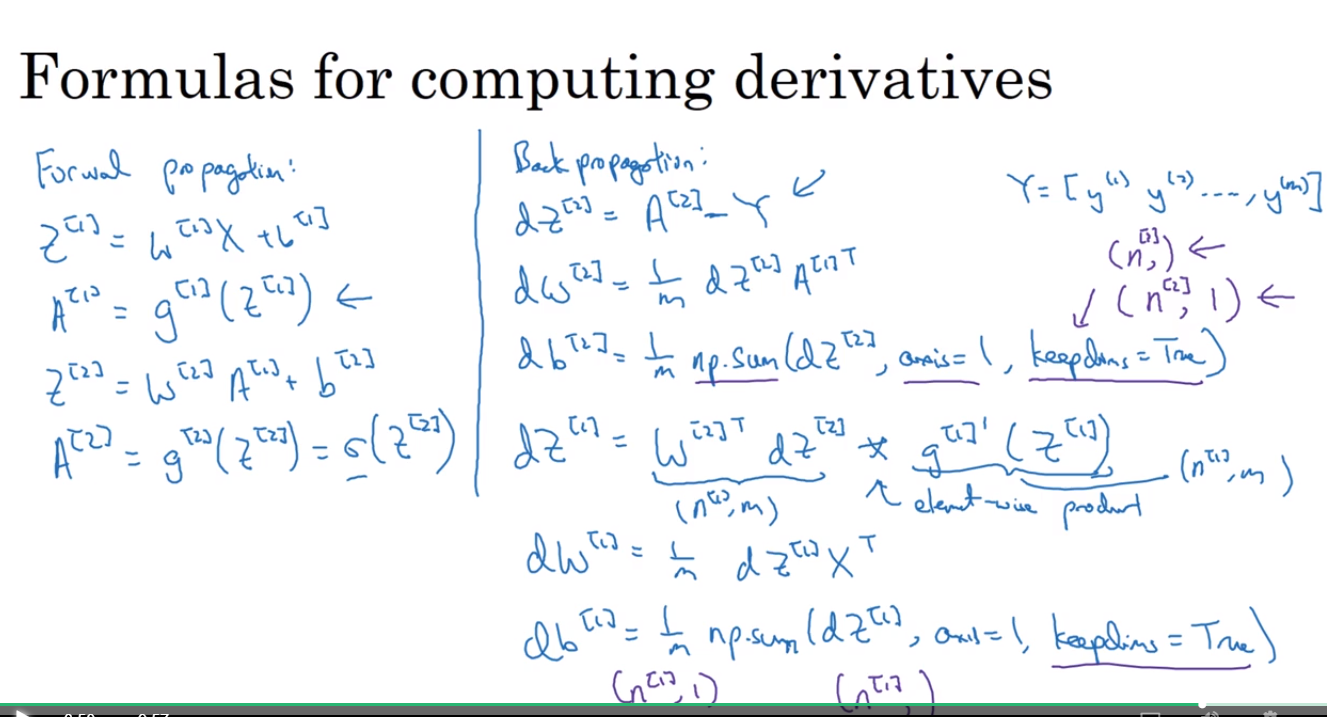 Formulas for computing derivatives
Forward propagation:
Z^[1] = W^[1] X + b^[1]
A^[1] = g^[1](Z^[1]) ←
Z^[2] = W^[2] A^[1] + b^[2]
A^[2] = g^[2](Z^[2]) = σ(Z^[2])
Back propagation:
dZ^[2] = A^[2] - Y ↙
dW^[2] = 1/m dZ^[2] A^[1]T
db^[2] = 1/m np.sum(dZ^[2], axis=1, keepdims=True)
dZ^[1] = W^[2]T dZ^[2] * g^[1]'(Z^[1])
(n^[1], m) ↖ element-wise product (n^[1], m)
dW^[1] = 1/m dZ^[1] X^T
db^[1] = 1/m np.sum(dZ^[1], axis=1, keepdims=True)
(n^[1], 1) (n^[1], )
Y = [y^(1) y^(2) ...., y^(m)]
(n^[2],) ←
↙ (n^[2], 1) ←